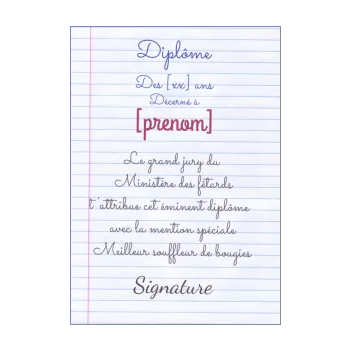 Diplôme
Des [xx] ans
Décerné à
[prenom]
Le grand jury du
Ministère des fêtards
t 'attribue cet éminent diplôme
avec la mention spéciale
Meilleur souffleur de bougies
Signature